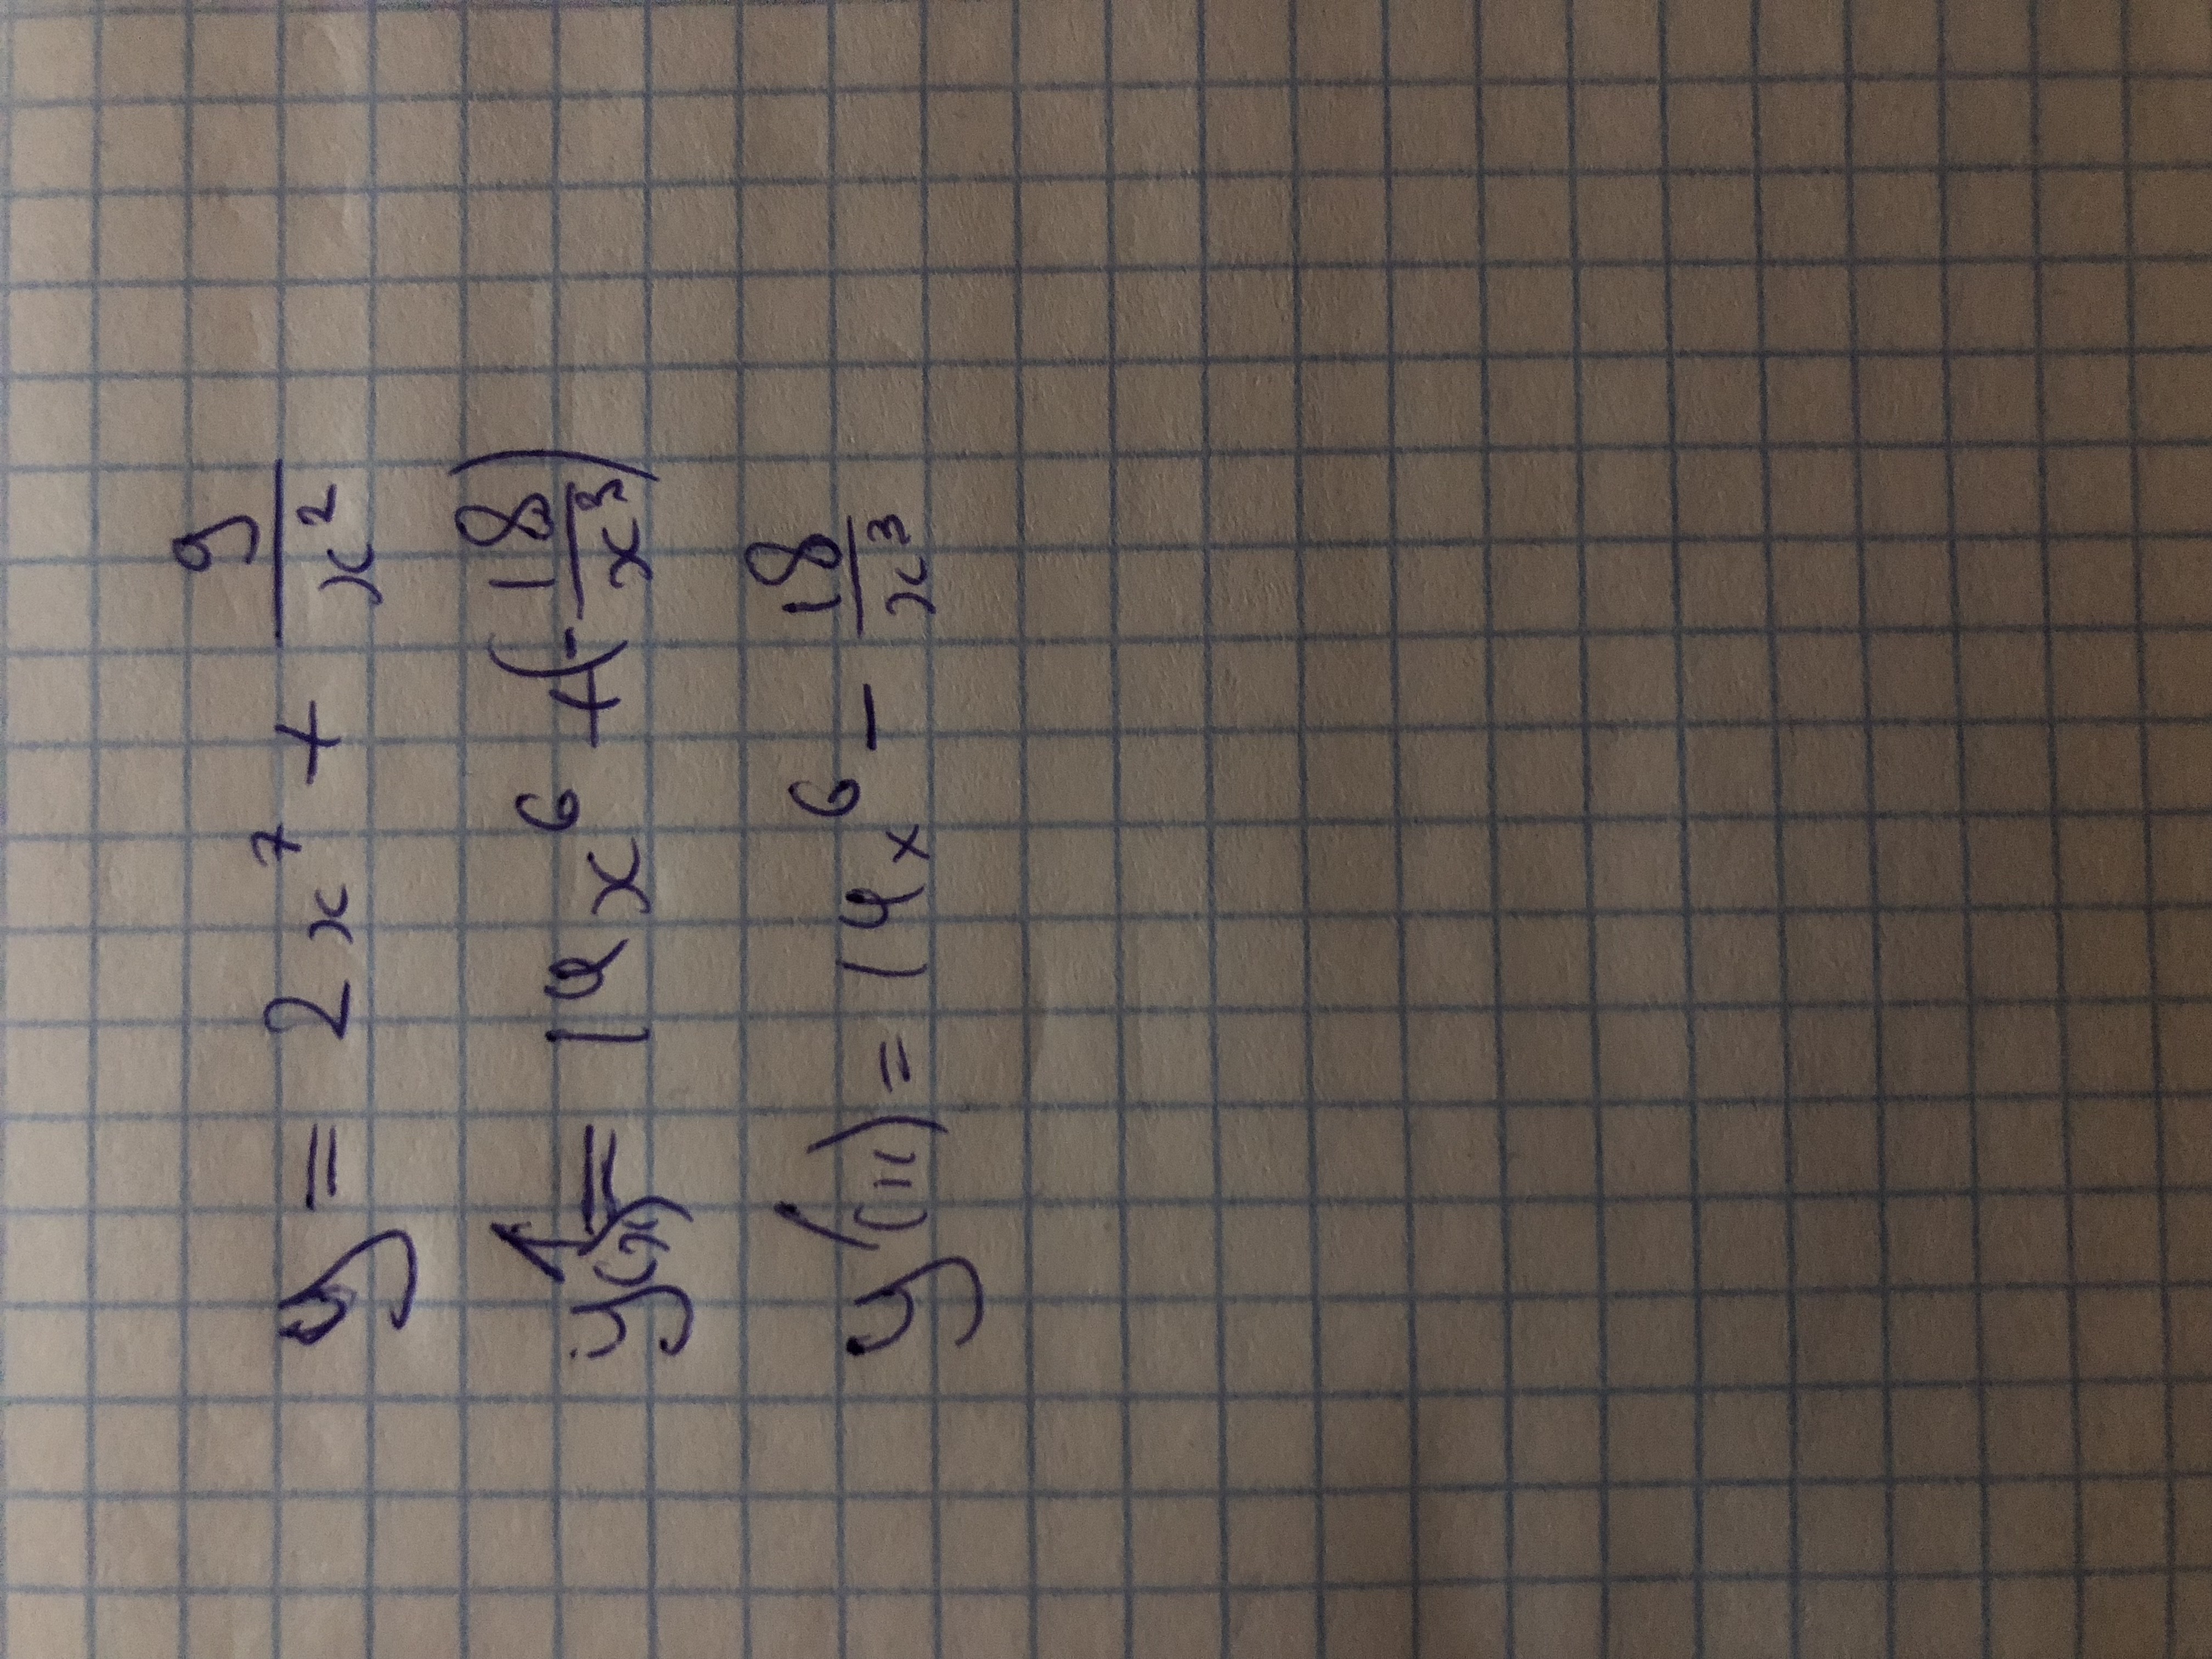 y = 2x⁷ + 9/x²
y'(x) = 14x⁶ + (-18/x³)
y'(x) = 14x⁶ - 18/x³